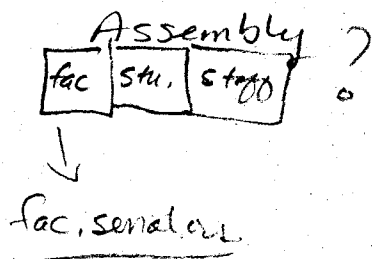 Assembly ?
fac stu. staff
fac. senators